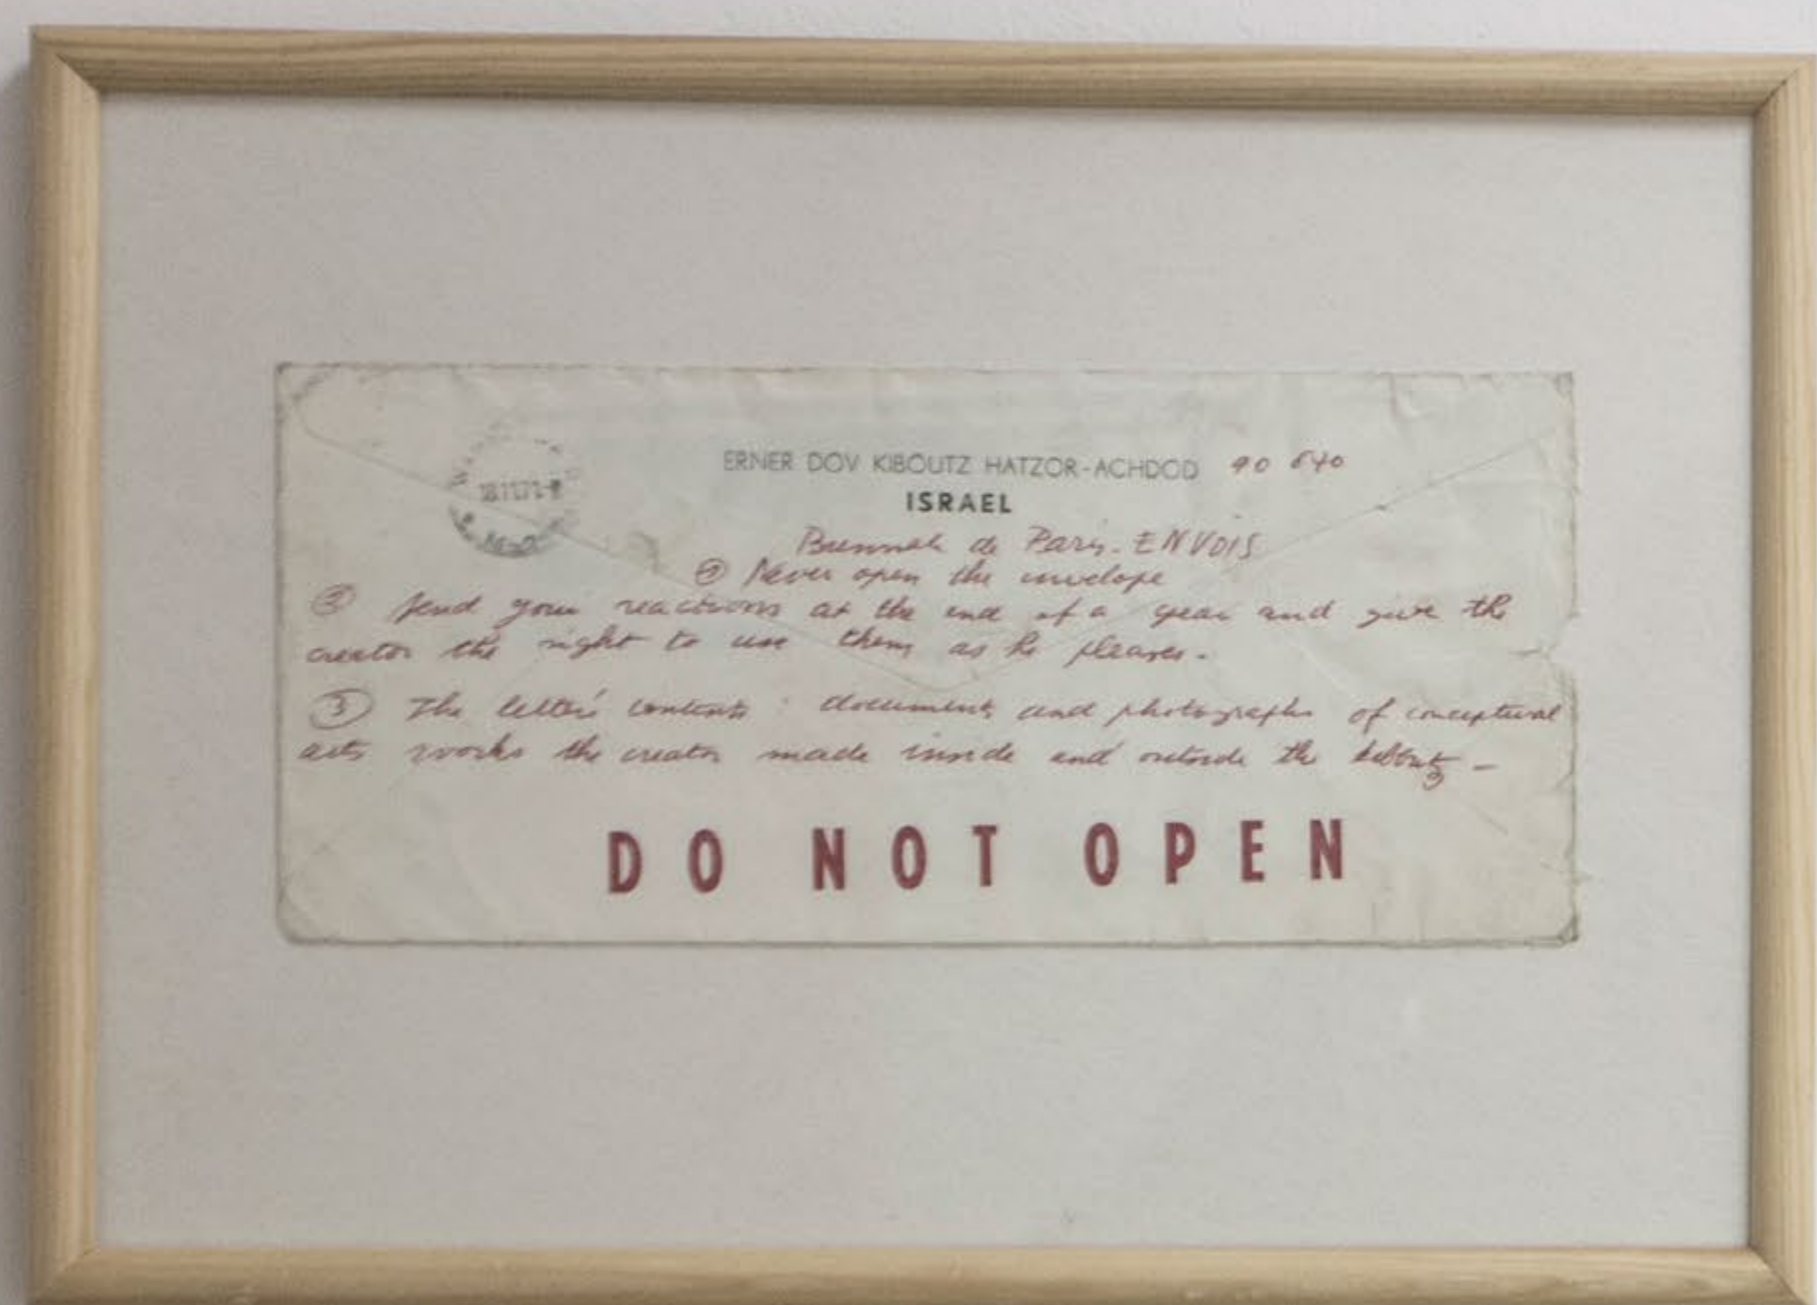 ERNER DOV KIBOUTZ HATZOR-ACHDOD 90 640
ISRAEL
de Paris. ENVOIS
① Never open the envelope
② Send your reactions at the end of a year and give the
creator the right to use them as he pleases.
③ The letter's contents : documents and photographs of conceptual
arts works the creator made inside and outside the kibbutz -
DO NOT OPEN